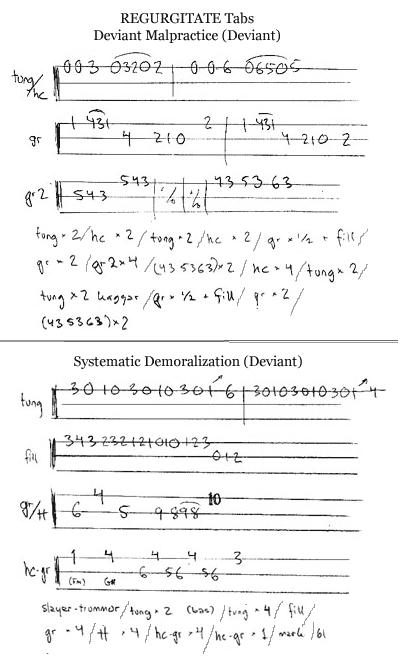 REGURGITATE Tabs
Deviant Malpractice (Deviant)
tung/hc 003 03202 | 006 06505
gr 1 431 4 210 2 | 1 431 4 210 2
gr2 543 543 | % | % | 43 53 63
tung × 2 / hc × 2 / tung × 2 / hc × 2 / gr × 1/2 + fill /
gr × 2 / gr2 × 4 / (435363) × 2 / hc × 4 / tung × 2 /
tung × 2 haggar / gr × 1/2 + fill / gr × 2 /
(435363) × 2
Systematic Demoralization (Deviant)
tung 30 10 30 10 301 6 | 30103010301 4
fill 343 232 121 010 123 012
gr/H 6 4 5 9 898 10
hc-gr 1 4 6 4 56 4 56 3
(Fm) G#
slayer-trummor / tung × 2 (bas) / tung × 4 / fill /
gr × 4 / H × 4 / hc-gr × 4 / hc-gr × 1 / mark /